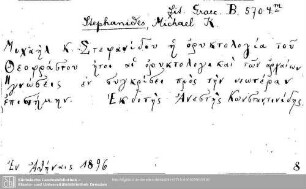 Lit. Graec. B. 5704.m
Stephanides, Michael K.
Μιχαὴλ Κ. Στεφανίδου ἡ ὀρυκτολογία τοῦ
Θεοφράστου ἤτοι αἱ ὀρυκτολογικαὶ τῶν ἀρχαίων
γνώσεις ἐν συγκρίσει πρὸς τὴν νεωτέραν
ἐπιστήμην. Ἐκδότης Ἀνέστης Κωνσταντινίδης.
Ἐν Ἀθήναις 1896 8